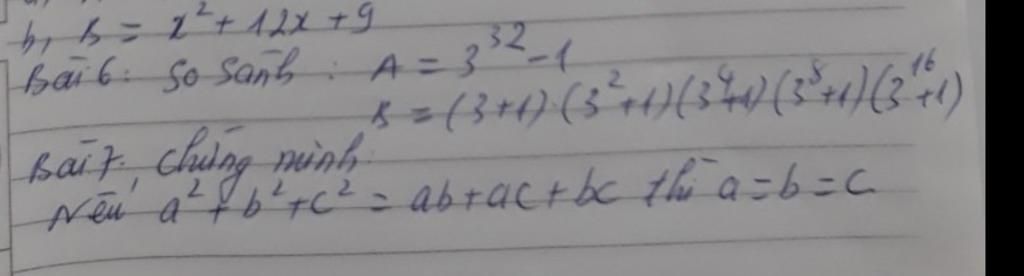 b, B = x² + 12x + 9
Bài 6: So sánh: A = 3³² - 1
B = (3+1).(3²+1)(3⁴+1)(3⁸+1)(3¹⁶+1)
Bài 7, Chứng minh:
Nếu a² + b² + c² = ab + ac + bc thì a = b = c